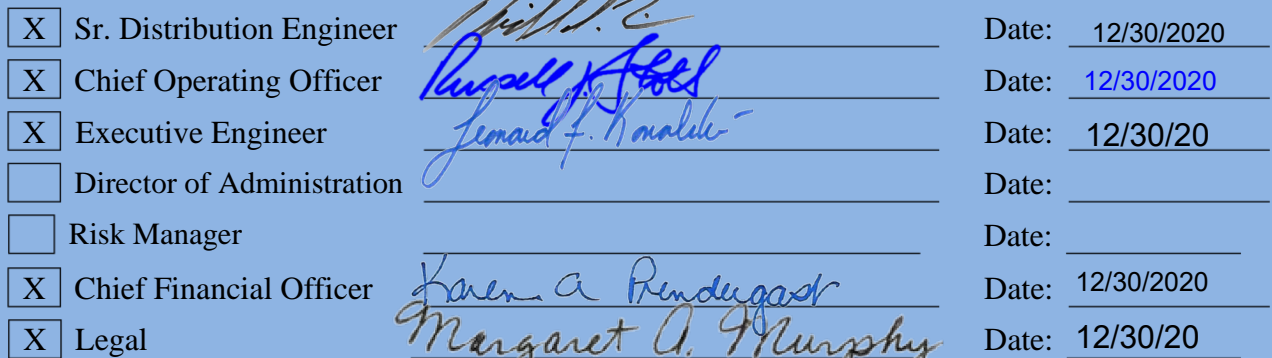 X Sr. Distribution Engineer Date: 12/30/2020
X Chief Operating Officer Russell J. Date: 12/30/2020
X Executive Engineer Leonard F. Kowalski Date: 12/30/20
Director of Administration Date:
Risk Manager Date:
X Chief Financial Officer Karen A Prendergast Date: 12/30/2020
X Legal Margaret A. Murphy Date: 12/30/20